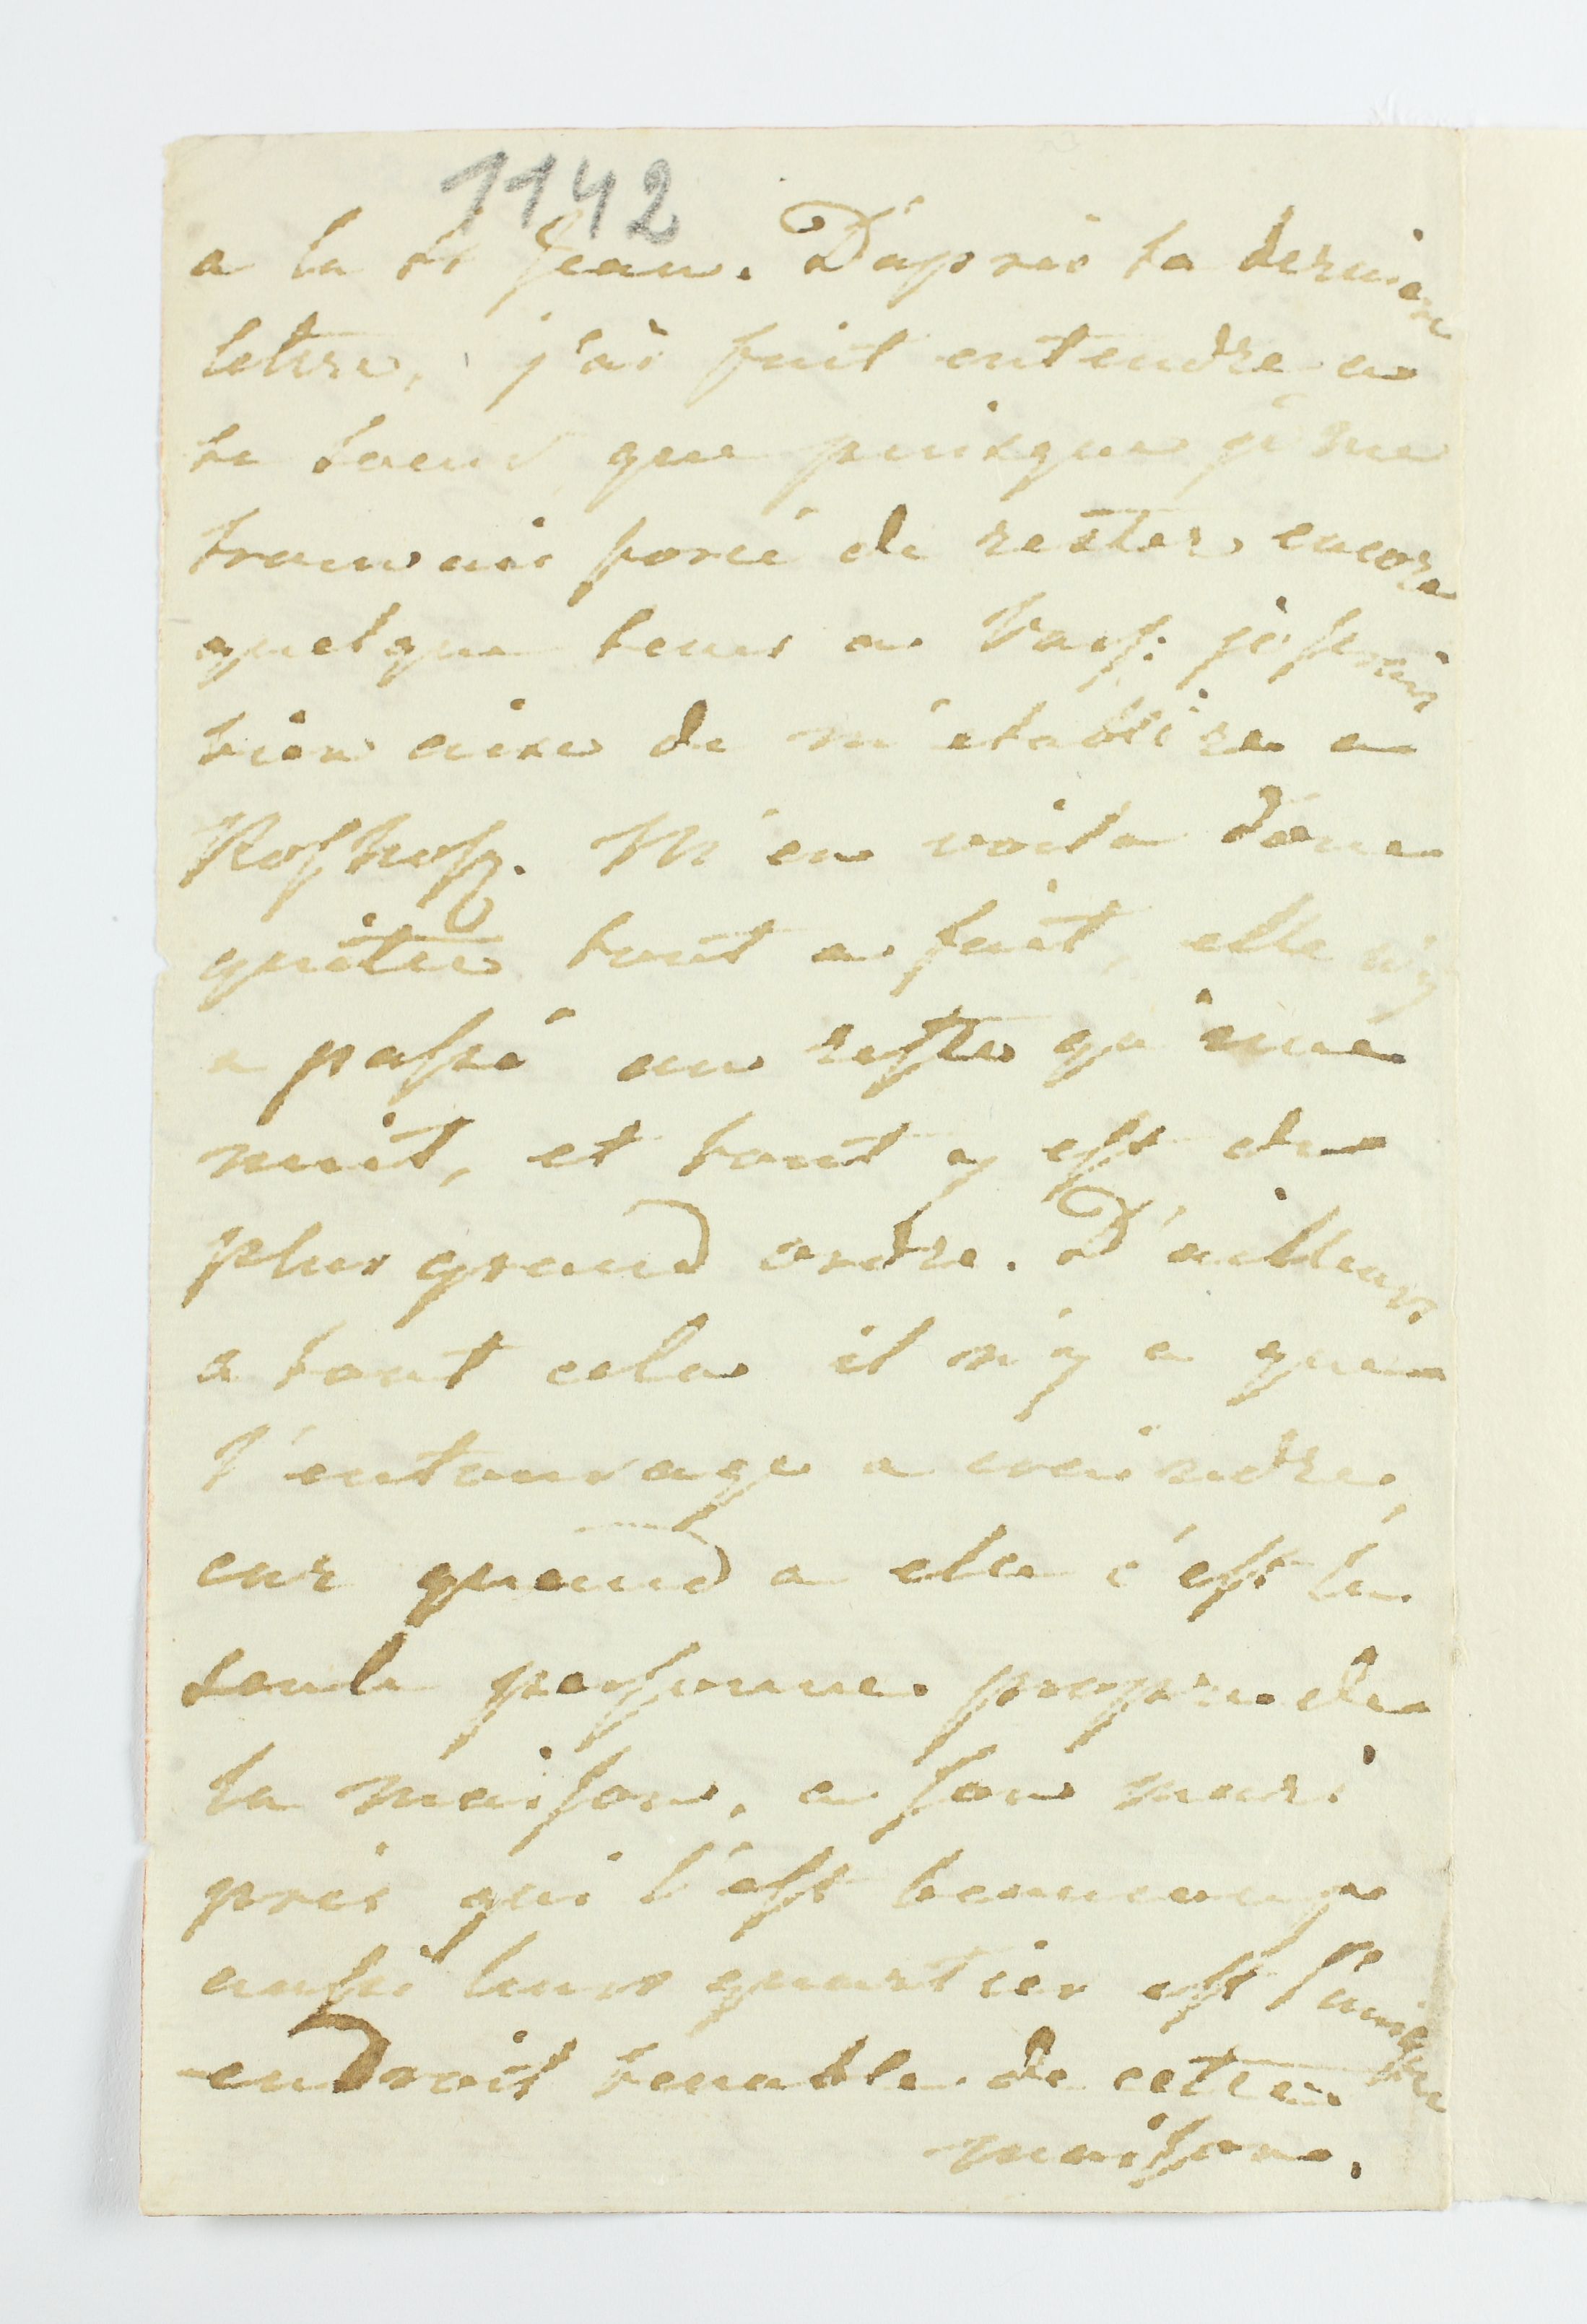 1142
a la St Jean. D'aprés ta derniere
lettre, j'ai fait entendre a
ta soeur que puisque je me
trouvais forcé de rester encore
quelque tems a je serais
bien aise de m'etablire a
M'en voila donc
quitte tout a fait, elle n'y
a passé au reste qu'une
nuit, et tout y est du
plus grand ordre. D'ailleurs
a tout cela il n'y a que
l'entourage a craindre,
car quand a elle c'est la
seule personne propre de
la maison, a son mari
prés qui l'est beaucoup
aussi leur quartier est l'unique
endroit tenable de cette
maison.